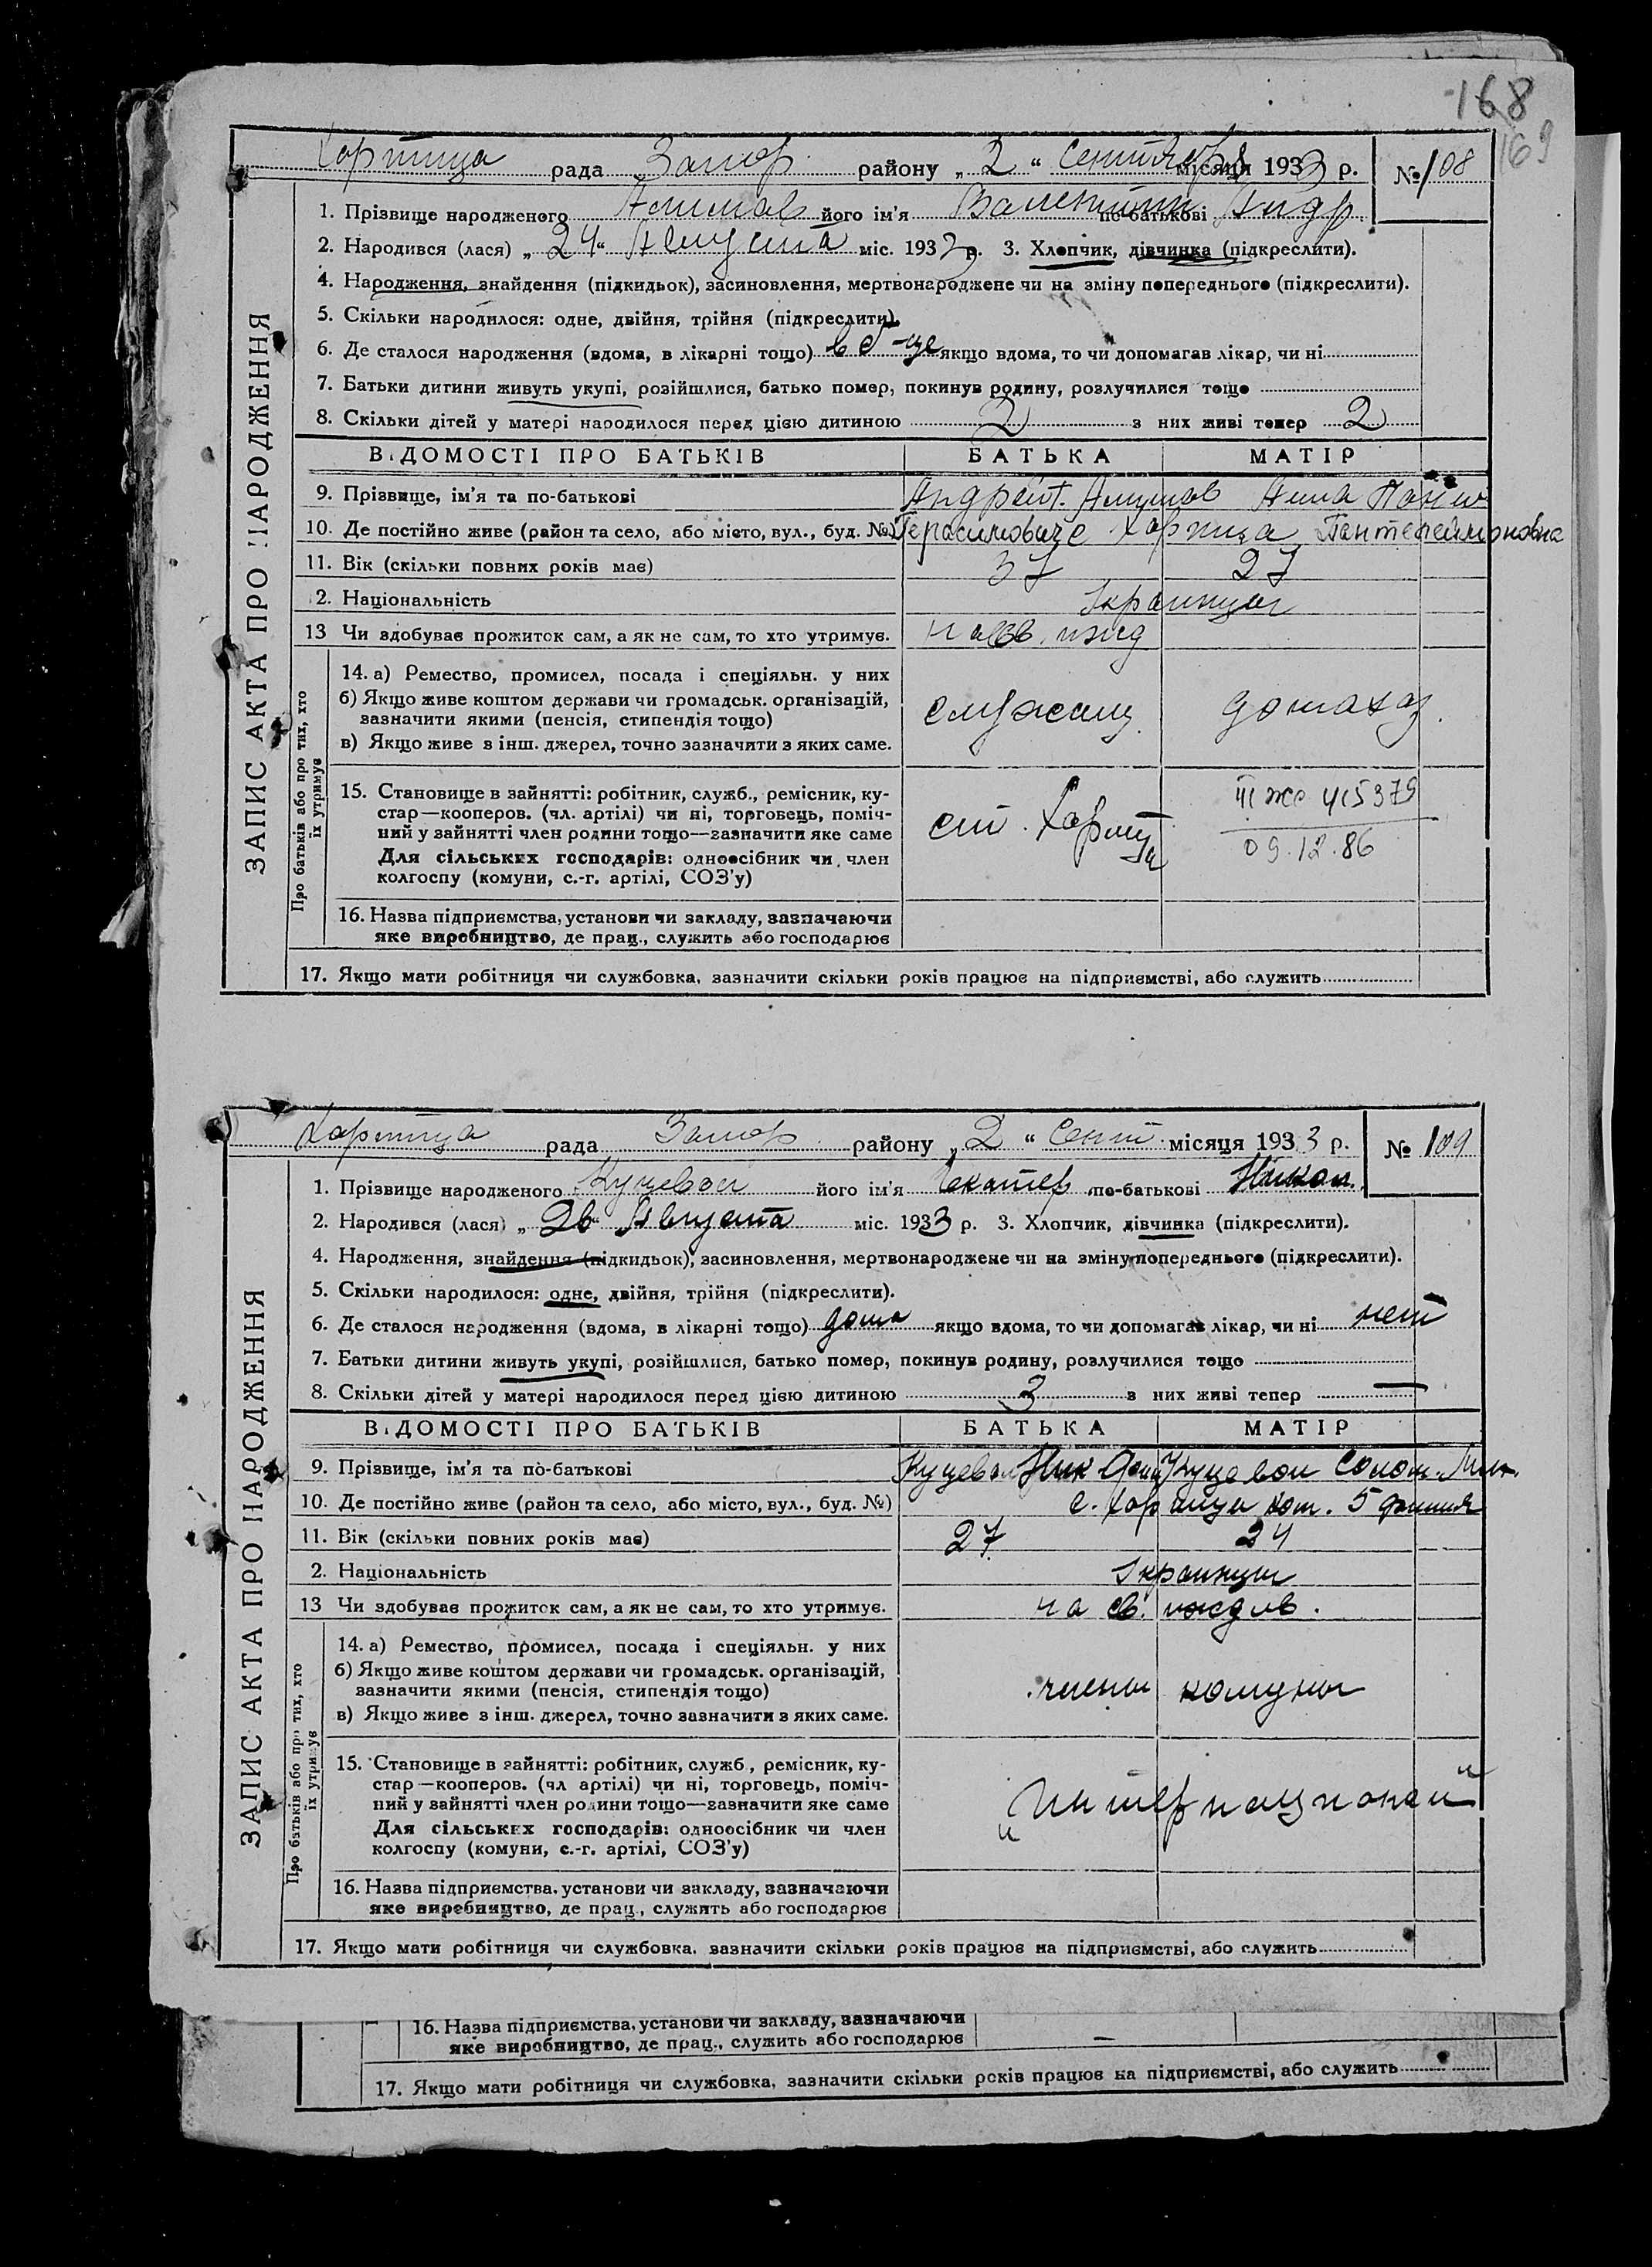 168
169
Хортица рада Запор. району „ 2 “ Сентября місяця 1933 р. № 108
1. Прізвище народженого його ім'я Валентин по-батькові Андр.
2. Народився (лася) „ 24 “ Августа міс. 1933 р. 3. Хлопчик, дівчинка (підкреслити).
4. Народження, знайдення (підкидьок), засиновлення, мертвонароджене чи на зміну попереднього (підкреслити).
5. Скільки народилося: одне, двійня, трійня (підкреслити).
6. Де сталося народження (вдома, в лікарні тощо) в б-це якщо вдома, то чи допомагав лікар, чи ні
7. Батьки дитини живуть укупі, розійшлися, батько помер, покинув родину, розлучилися тощо
8. Скільки дітей у матері народилося перед цією дитиною 2 з них живі тепер 2
ВІДОМОСТІ ПРО БАТЬКІВ БАТЬКА МАТІР
9. Прізвище, ім'я та по-батькові Андрей Анна
10. Де постійно живе (район та село, або місто, вул., буд. №) Герасимович с. Хортица Пантелеймоновна
11. Вік (скільки повних років має) 37 27
12. Національність Украинцы
13 Чи здобуває прожиток сам, а як не сам, то хто утримує. на св. ижд
ЗАПИС АКТА ПРО НАРОДЖЕННЯ
Про батьків або про тих, хто їх утримує
14. а) Ремество, промисел, посада і спеціяльн. у них
б) Якщо живе коштом держави чи громадськ. організацій,
зазначити якими (пенсія, стипендія тощо)
служащ. домахоз.
в) Якщо живе з інш. джерел, точно зазначити з яких саме.
15. Становище в зайнятті: робітник, служб., ремісник, ку-
стар—кооперов. (чл. артілі) чи ні, торговець, поміч-
ний у зайнятті член родини тощо—зазначити яке саме
Для сільських господарів: одноосібник чи член
колгоспу (комуни, с.-г. артілі, СОЗ'у)
ст. Хортица
III ЖС 415379
09.12.86
16. Назва підприємства, установи чи закладу, зазначаючи
яке виробництво, де прац., служить або господарює
17. Якщо мати робітниця чи службовка, зазначити скільки років працює на підприємстві, або служить
Хортица рада Запор. району „ 2 “ Сент. місяця 1933 р. № 109
1. Прізвище народженого Куцевол його ім'я Екатер по-батькові Никол.
2. Народився (лася) „ 26 “ Августа міс. 1933 р. 3. Хлопчик, дівчинка (підкреслити).
4. Народження, знайдення (підкидьок), засиновлення, мертвонароджене чи на зміну попереднього (підкреслити).
5. Скільки народилося: одне, двійня, трійня (підкреслити).
6. Де сталося народження (вдома, в лікарні тощо) дома якщо вдома, то чи допомагав лікар, чи ні нет
7. Батьки дитини живуть укупі, розійшлися, батько помер, покинув родину, розлучилися тощо
8. Скільки дітей у матері народилося перед цією дитиною 3 з них живі тепер —
ВІДОМОСТІ ПРО БАТЬКІВ БАТЬКА МАТІР
9. Прізвище, ім'я та по-батькові Куцевол Ник Куцевол Солом.
10. Де постійно живе (район та село, або місто, вул., буд. №) с. Хортица 5
11. Вік (скільки повних років має) 27 24
2. Національність Украинцы
13 Чи здобуває прожиток сам, а як не сам, то хто утримує. на св. иждив.
ЗАПИС АКТА ПРО НАРОДЖЕННЯ
Про батьків або про тих, хто їх утримує
14. а) Ремество, промисел, посада і спеціяльн. у них
б) Якщо живе коштом держави чи громадськ. організацій,
зазначити якими (пенсія, стипендія тощо)
члены комуны
в) Якщо живе з інш. джерел, точно зазначити з яких саме.
15. Становище в зайнятті: робітник, служб., ремісник, ку-
стар—кооперов. (чл артілі) чи ні, торговець, поміч-
ний у зайнятті член родини тощо—зазначити яке саме
Для сільських господарів: одноосібник чи член
колгоспу (комуни, с.-г. артілі, СОЗ'у)
„Интернационал“
16. Назва підприємства, установи чи закладу, зазначаючи
яке виробництво, де прац., служить або господарює
17. Якщо мати робітниця чи службовка, зазначити скільки років працює на підприємстві, або служить
16. Назва підприємства, установи чи закладу, зазначаючи
яке виробництво, де прац., служить або господарює —
17. Якщо мати робітниця чи службовка, зазначити скільки років працює на підприємстві, або служить